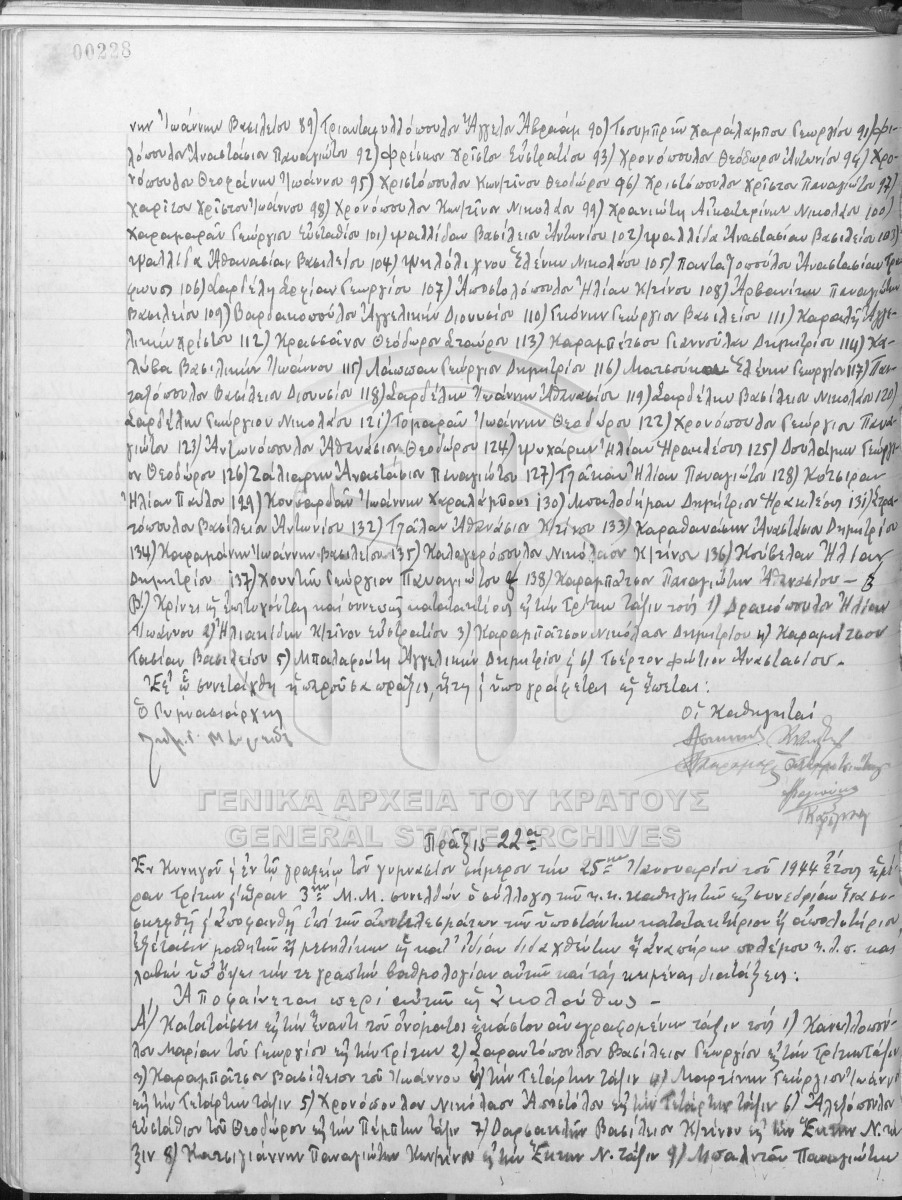 00228
νην Ἰωάννην Βασιλείου 89) Τριανταφυλλόπουλον Ἄγγελον Ἀβραὰμ 90) Τσουμπρῆν Χαράλαμπον Γεωργίου 91) Φι-
λόπουλον Ἀναστάσιον Παναγιώτου 92) Φρέσκον Χρῆστον Εὐστρατίου 93) Χρονόπουλον Θεόδωρον Ἀντωνίου 94) Χρο-
νόπουλον Θεοφάνην Ἰωάννου 95) Χριστόπουλον Κων/τῖνον Θεοδώρου 96) Χριστόπουλον Χρῆστον Παναγιώτου 97)
Χαρίτον Χρῆστον Ἰωάννου 98) Χρονόπουλον Κων/τῖνον Νικολάου 99) Χρανιώτη Αἰκατερίνην Νικολάου 100)
Χαραμαρᾶν Γεώργιον Εὐσταθίου 101) Ψαλλίδαν Βασίλειον Ἀντωνίου 102) Ψαλλίδα Ἀναστασίαν Βασιλείου 103)
Ψαλλίδα Ἀθανασίαν Βασιλείου 104) Ἑλένην Νικολάου 105) Πανταζοπούλου Ἀναστασίαν Τρύ-
φωνος 106) Σαρδέλη Σοφίαν Γεωργίου 107) Ἀποστολόπουλον Ἠλίαν Κ/τίνου 108) Ἀρβανίτην Παναγιώτην
Βασιλείου 109) Βαρδακοπούλου Ἀγγελικὴν Διονυσίου 110) Γκόνην Γεώργιον Βασιλείου 111) Καραλῆ Ἀγγε-
λικὴν Χρίστου 112) Κρασσᾶνον Θεόδωρον Σταύρου 113) Καραμπέτσου Γιαννούλαν Δημητρίου 114) Κα-
λύβα Βασιλικὴν Ἰωάννου 115) Λάππαν Γεώργιον Δημητρίου 116) Ματσούκα Ἑλένην Γεωργίου 117) Παν-
ταζόπουλον Βασίλειον Διονυσίου 118) Σαρδέλην Ἰωάννην Ἀθανασίου 119) Σαρδέλην Βασίλειον Νικολάου 120)
Σαρδέλην Γεώργιον Νικολάου 121) Τομαρᾶν Ἰωάννην Θεοδώρου 122) Χρονόπουλον Γεώργιον Πανα-
γιώτου 123) Ἀντωνόπουλον Ἀθανάσιον Θεοδώρου 124) Ψυχάρην Ἠλίαν Ἡρακλέους 125) Δουλάμην Γεώργι-
ον Θεοδώρου 126) Ζάλιαρην Ἀναστάσιον Παναγιώτου 127) Τζάκαν Ἠλίαν Παναγιώτου 128) Κότσιραν
Ἠλίαν Παύλου 129) Κουβαρδᾶν Ἰωάννην Χαραλάμπους 130) Μπαλοδήμαν Δημήτριον Ἡρακλέους 131) Στρα-
τόπουλον Βασίλειον Ἀντωνίου 132) Τζάλαν Ἀθανάσιον Κ/τίνου 133) Καραθανάσην Ἀναστάσιον Δημητρίου
134) Καραμάνην Ἰωάννην Βασιλείου 135) Καλογερόπουλον Νικόλαον Κ/τίνου 136) Κούβελαν Ἠλίαν
Δημητρίου 137) Χουντῆν Γεώργιον Παναγιώτου & 138) Καραμπάτσον Παναγιώτην Ἀθανασίου —
Β) Κρίνει ὡς ἐπιτυχόντας καὶ συνεπῶς κατατακτέους εἰς τὴν Τρίτην τάξιν τοὺς 1) Δρακόπουλον Ἠλίαν
Ἰωάννου 2) Ἠλιακίδην Κ/τῖνον Εὐστρατίου 3) Καραμπάτσον Νικόλαον Δημητρίου 4) Καραμήτσον
Τασίαν Βασιλείου 5) Μπαλαφούτη Ἀγγελικὴν Δημητρίου & 6) Τσέρτον Φώτιον Ἀναστασίου.
Ἐφ' ᾧ συνετάχθη ἡ παροῦσα πρᾶξις, ἥτις & ὑπογράφεται ὡς ἕπεται:
Ὁ Γυμνασιάρχης
Οἱ Καθηγηταὶ
ΓΕΝΙΚΑ ΑΡΧΕΙΑ ΤΟΥ ΚΡΑΤΟΥΣ
GENERAL STATE ARCHIVES
Πρᾶξις 22α
Ἐν Κυνηγοῦ & ἐν τῷ γραφείῳ τοῦ γυμνασίου σήμερον τὴν 25ην Ἰανουαρίου τοῦ 1944 ἔτους ἡμέ-
ραν Τρίτην & ὥραν 3ην Μ.Μ. συνελθὼν ὁ σύλλογος τῶν κ.κ. καθηγητῶν εἰς συνεδρίαν ἵνα συ-
σκεφθῇ & ἀποφανθῇ ἐπὶ τῶν ἀποτελεσμάτων τῶν ὑποστάντων κατατακτήριον ἢ ἀπολυτήριον
ἐξέτασιν μαθητῶν ἢ μετηλίκων ὡς κατ' ἰδίαν διδαχθέντων ἢ ἀναπήρων πολέμου κ.λ.π. καὶ
λαβὼν ὑπ' ὄψει τήν τε γραπτὴν βαθμολογίαν αὐτῶν καὶ τὰς κειμένας διατάξεις:
Ἀποφαίνεται περὶ αὐτῶν ὡς ἀκολούθως —
Α) Κατατάσσει εἰς τὴν ἔναντι τοῦ ὀνόματος ἑκάστου ἀναγραφομένην τάξιν τοὺς 1) Κανελλοπού-
λου Μαρίαν τοῦ Γεωργίου εἰς τὴν Τρίτην 2) Σαραντόπουλον Βασίλειον Γεωργίου εἰς τὴν Τρίτην τάξιν
3) Καραμπάτσον Βασίλειον τοῦ Ἰωάννου εἰς τὴν Τετάρτην τάξιν 4) Μαρτίνην Γεώργιον Ἰωάννου
εἰς τὴν Τετάρτην τάξιν 5) Χρονόπουλον Νικόλαον Ἀποστόλου εἰς τὴν Τετάρτην τάξιν 6) Ἀλεξόπουλον
Εὐστάθιον τοῦ Θεοδώρου εἰς τὴν Πέμπτην τάξιν 7) Δαρσακλῆν Βασίλειον Κ/τίνου εἰς τὴν Ἕκτην Ν. τά-
ξιν 8) Κατσιγιάννην Παναγιώτην Κων/τίνου εἰς τὴν Ἕκτην Ν. τάξιν 9) Μπαλντᾶν Παναγιώτην